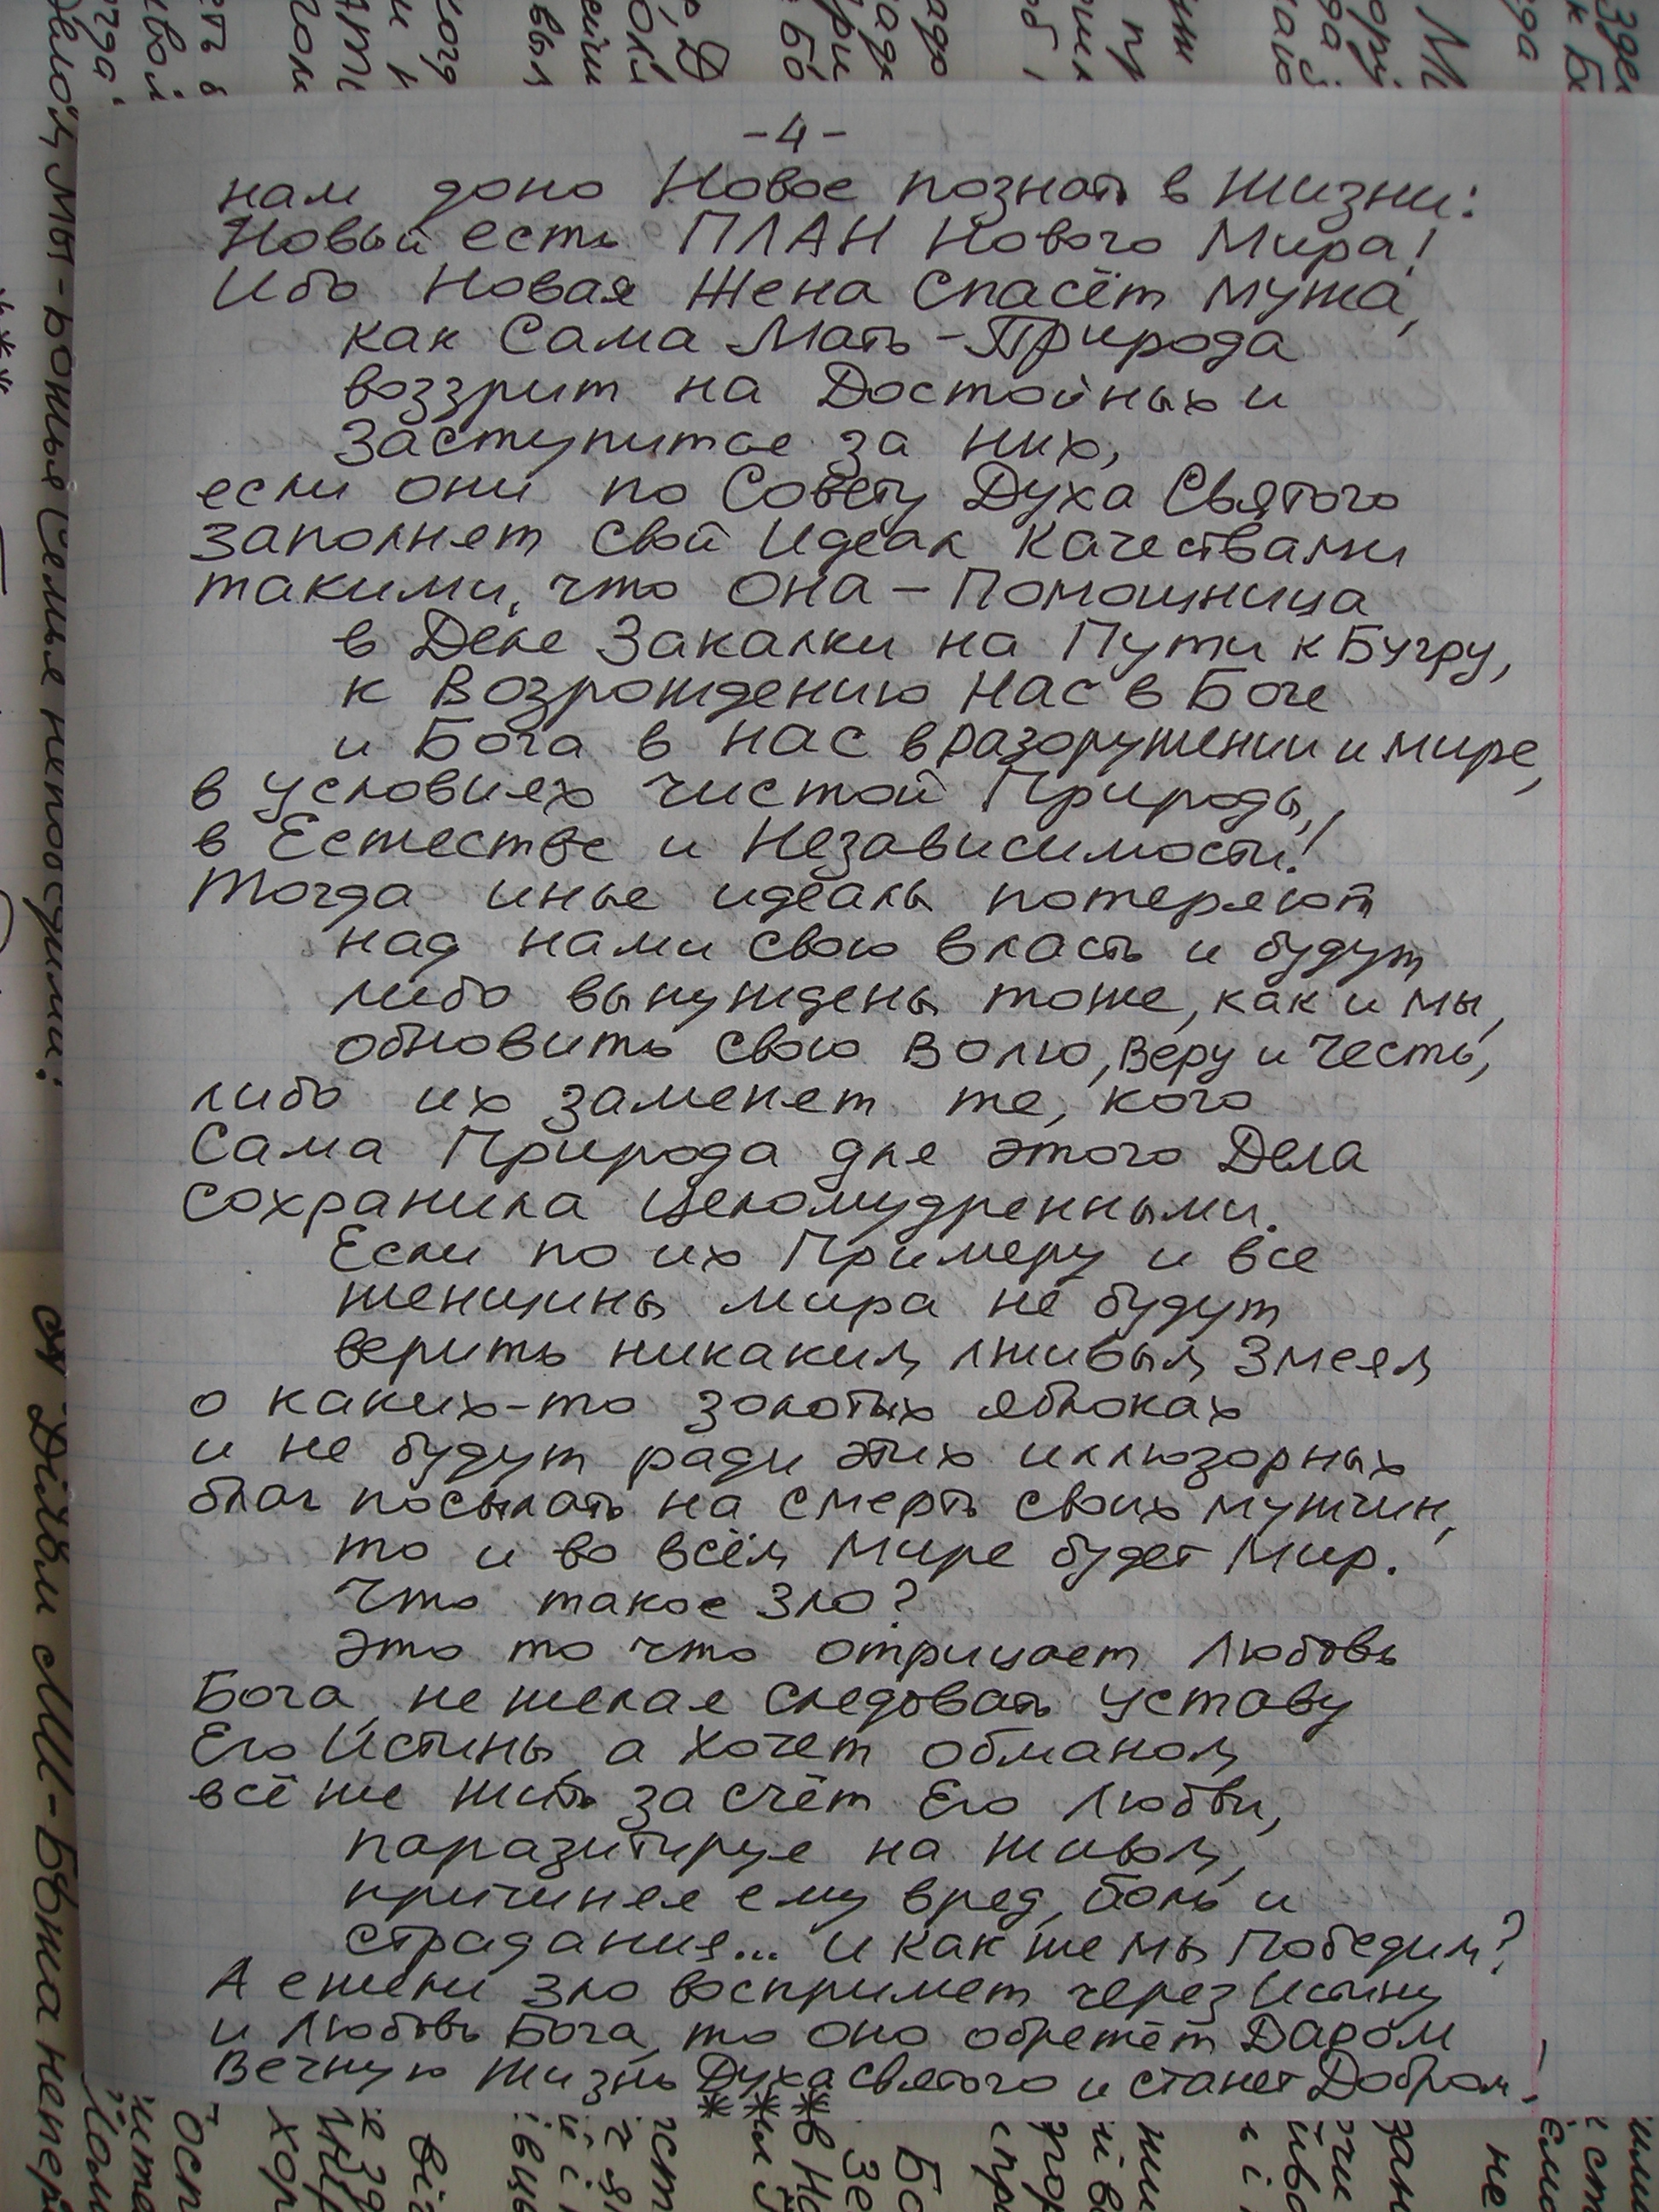 -4-
нам дано Новое познать в Жизни:
Новый есть ПЛАН Нового Мира!
Ибо Новая Жена Спасёт мужа,
как Сама Мать-Природа
воззрит на Достойных и
Заступится за них,
если они по Совету Духа Святого
заполнят свой Идеал Качествами
такими, что Она – Помощница
в Деле Закалки на Пути к Бугру,
к Возрождению Нас в Боге
и Бога в нас в разоружении и мире,
в условиях чистой Природы,
в Естестве и Независимости!
Тогда иные идеалы потеряют
над нами свою власть и будут
либо вынуждены тоже, как и мы,
обновить свою Волю, Веру и Честь,
либо их заменят те, кого
Сама Природа для этого Дела
сохранила целомудренными.
Если по их Примеру и все
женщины мира не будут
верить никаким лживым Змеям
о каких-то золотых яблоках
и не будут ради этих иллюзорных
благ посылать на смерть своих мужчин,
то и во всём Мире будет Мир.
Что такое Зло?
Это то что отрицает Любовь
Бога, не желая следовать Уставу
Его Истины, а хочет обманом
всё же жить за счёт Его Любви,
паразитируя на живом,
причиняя ему вред, боль и
страдания... и как же мы Победим?
А ежели зло воспримет через Истину
и Любовь Бога, то оно обретёт Даром
Вечную Жизнь Духа Святого и станет Добром!
***